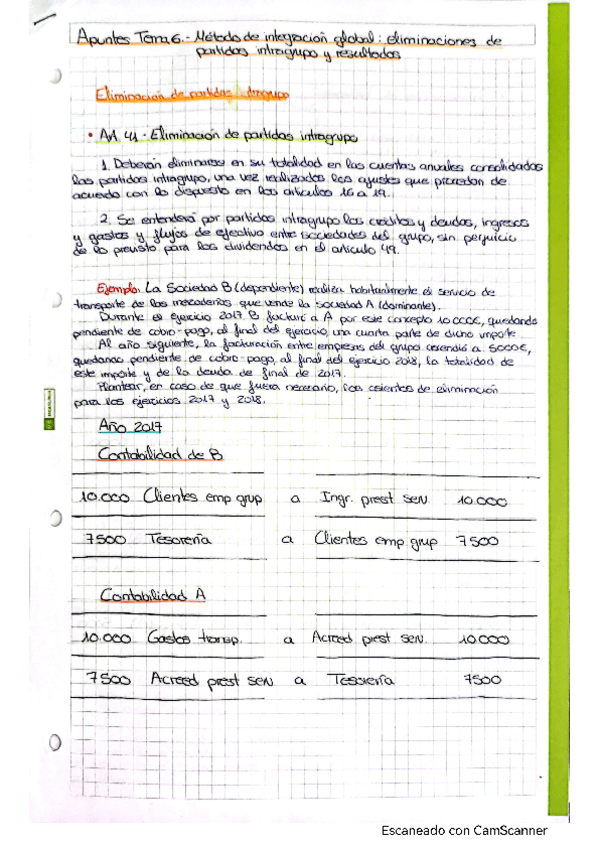 Apuntes Tema 6.- Método de integración global: eliminaciones de
partidas intragrupo y resultados
Eliminación de partidas intragrupo
• Art 41.- Eliminación de partidas intragrupo
1. Deberán eliminarse en su totalidad en las cuentas anuales consolidadas
las partidas intragrupo, una vez realizados los ajustes que procedan de
acuerdo con lo dispuesto en los artículos 16 a 19.
2. Se entenderá por partidas intragrupo los créditos y deudas, ingresos
y gastos y flujos de efectivo entre sociedades del grupo, sin perjuicio
de lo previsto para los dividendos en el artículo 49.
Ejemplo: La Sociedad B (dependiente) realiza habitualmente el servicio de
transporte de las mercaderías que vende la sociedad A (dominante).
Durante el ejercicio 2017 B facturó a A por este concepto 10.000€, quedando
pendiente de cobro-pago, al final del ejercicio, una cuarta parte de dicho importe
Al año siguiente, la facturación entre empresas del grupo ascendió a 5000€,
quedando pendiente de cobro-pago, al final del ejercicio 2018, la totalidad de
este importe y de la deuda de final de 2017.
Plantear, en caso de que fuera necesario, los asientos de eliminación
para los ejercicios 2017 y 2018.
Año 2017
Contabilidad de B
10.000 Clientes emp grup a Ingr. prest serv. 10.000
7500 Tesorería a Clientes emp. grup 7500
Contabilidad A
10.000 Gastos transp. a Acreed prest serv. 10.000
7500 Acreed prest serv a Tesorería 7500
Escaneado con CamScanner